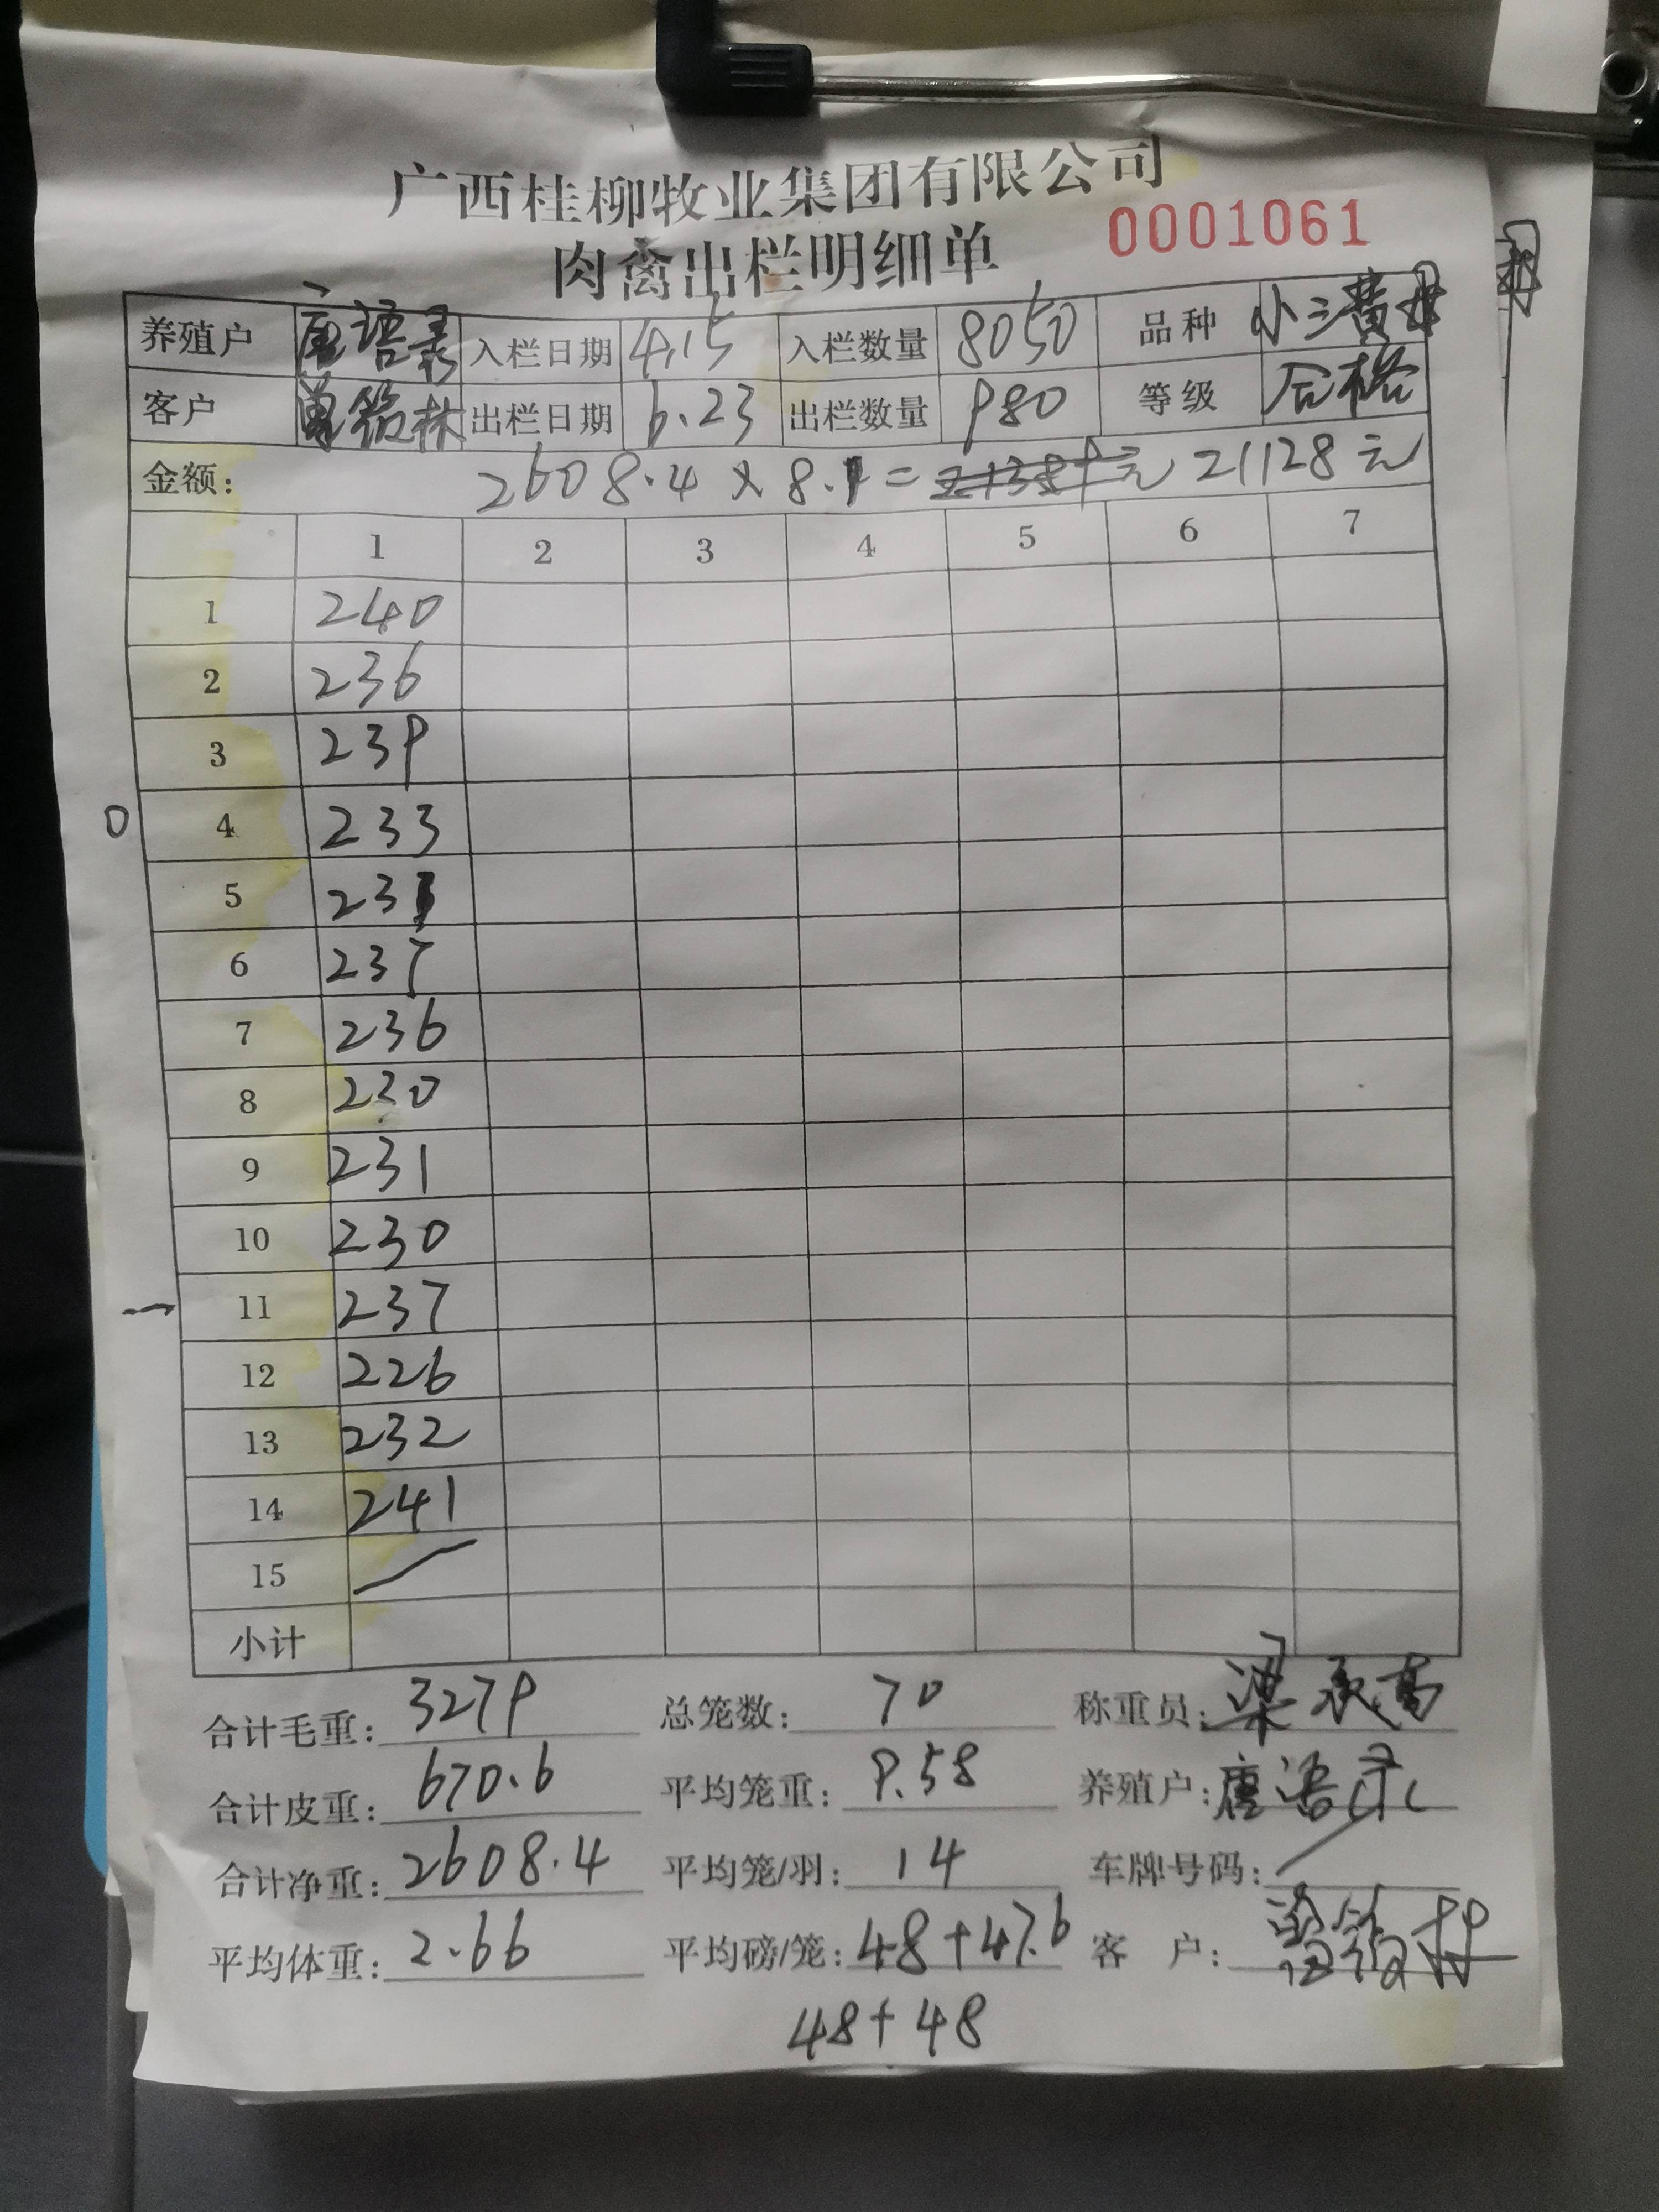 广西桂柳牧业集团有限公司
肉禽出栏明细单 0001061
养殖户 唐语录 入栏日期 4.15 入栏数量 8050 品种 小三黄母
客户 出栏日期 6.23 出栏数量 980 等级 合格
金额: 2608.4 × 8.1 = 元 21128元
1 2 3 4 5 6 7
1 240
2 236
3 239
4 233
5 231
6 237
7 236
8 230
9 231
10 230
11 237
12 226
13 232
14 241
15
小计
合计毛重: 3279 总笼数: 70 称重员: 梁
合计皮重: 670.6 平均笼重: 9.58 养殖户: 唐语录
合计净重: 2608.4 平均笼/羽: 14 车牌号码:
平均体重: 2.66 平均磅/笼: 48+47.6 客户:
48+48